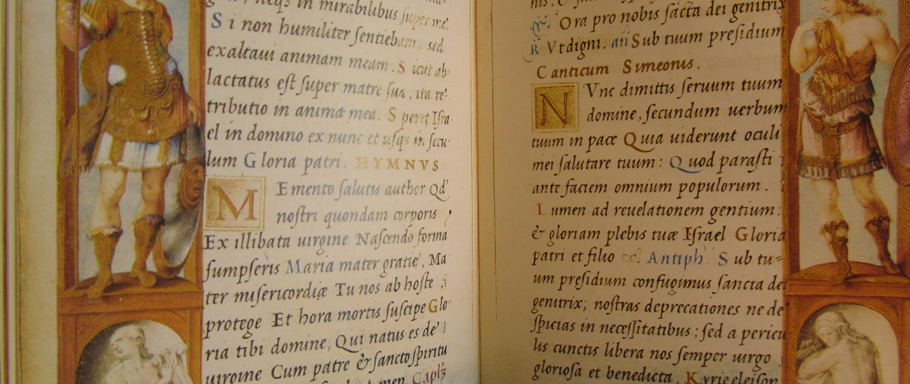 neqꝫ in mirabilibus super me.
Si non humiliter sentiebam, sed
exaltaui animam meam. Sicut ab-
lactatus est super matre sua, ita re-
tributio in anima mea. Speret Isra
el in domino ex nunc et usqꝫ in secu
lum Gloria patri. HYMNVS
Memento salutis author Qd'
nostri quondam corporis
Ex illibata uirgine Nascendo forma
sumpseris Maria mater gratie, Ma
ter misericordiæ Tu nos ab hoste
protege Et hora mortis suscipe Glo
ria tibi domine, Qui natus es de
uirgine Cum patre & sancto spiritu
Amen. Capls
Ora pro nobis sācta dei genitrix
R Vt digni. añ Sub tuum presidium
Canticum Simeonis.
NVnc dimittis seruum tuum
domine, secundum uerbum
tuum in pace Quia uiderunt oculi
mei salutare tuum: Quod parasti
ante faciem omnium populorum.
Lumen ad reuelationem gentium:
& gloriam plebis tuæ Israel Gloria
patri et filio Antiph. Sub tu-
um presidium confugimus sancta dei
genitrix; nostras deprecationes ne de
spicias in necessitatibus; sed a pericu
lis cunctis libera nos semper uirgo
gloriosa et benedicta. Kyrie eleison